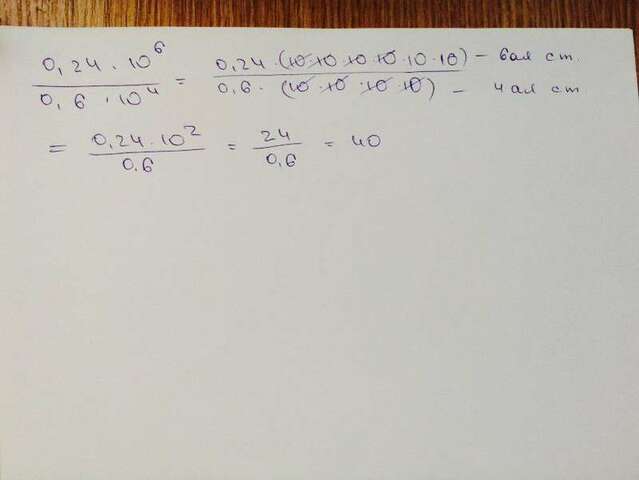 0,24 · 10⁶ / 0,6 · 10⁴ = 0,24 · (10·10·10·10·10·10) / 0,6 · (10·10·10·10) – 6ая ст.
– 4 ая ст
= 0,24 · 10² / 0,6 = 24 / 0,6 = 40